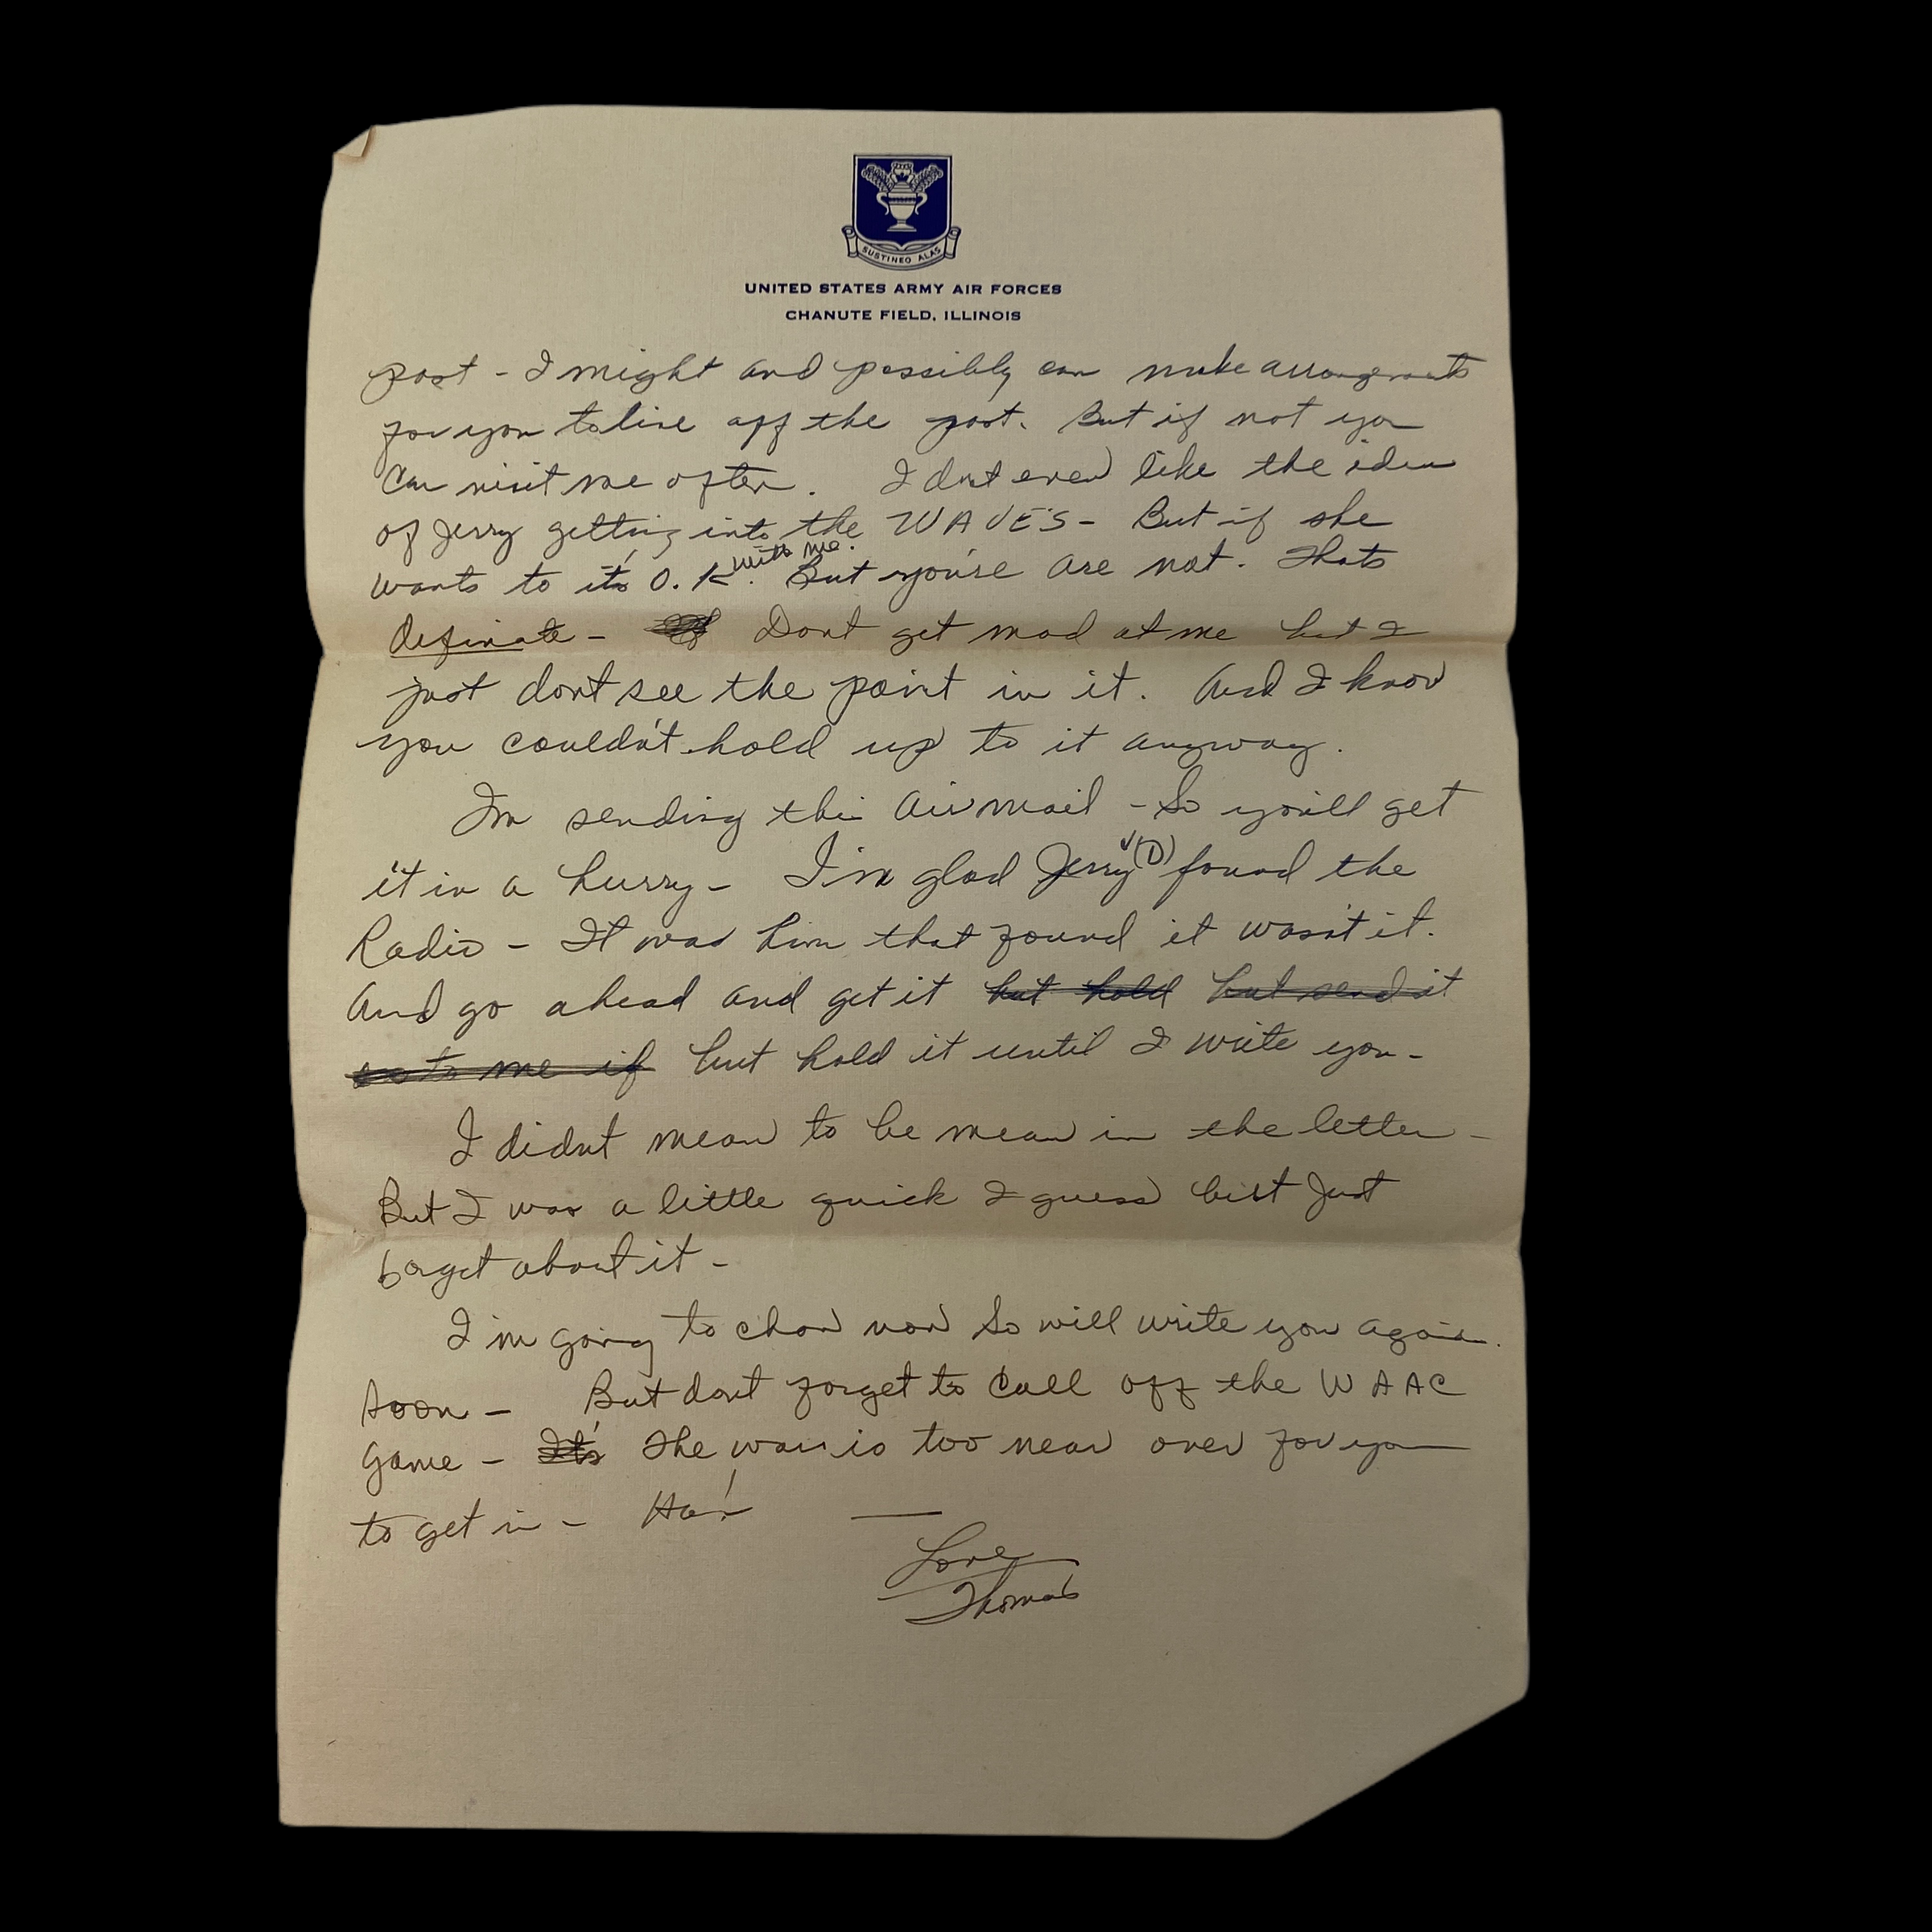 SUSTINEO ALAS
UNITED STATES ARMY AIR FORCES
CHANUTE FIELD, ILLINOIS
post - I might and possibly can make arrangements
for you to live off the post. But if not you
can visit me often. I dont even like the idea
of Jerry getting into the WAVES - But if she
with me.
wants to it's O.K. But you're are not. Thats
definate - Dont get mad at me but I
just dont see the point in it. And I know
you couldn't hold up to it anyway.
Im sending this Air mail - So you'll get
it in a hurry - I'm glad Jerry (D) found the
Radio - It was him that found it wasn't it.
And go ahead and get it but hold but send it
to me if but hold it until I write you -
I didnt mean to be mean in the letter -
But I was a little quick I guess but Just
forget about it -
I'm going to chow now So will write you again.
soon - But dont forget to call off the WAAC
game - It's The war is too near over for you
to get in - Ha!
Love
Thomas